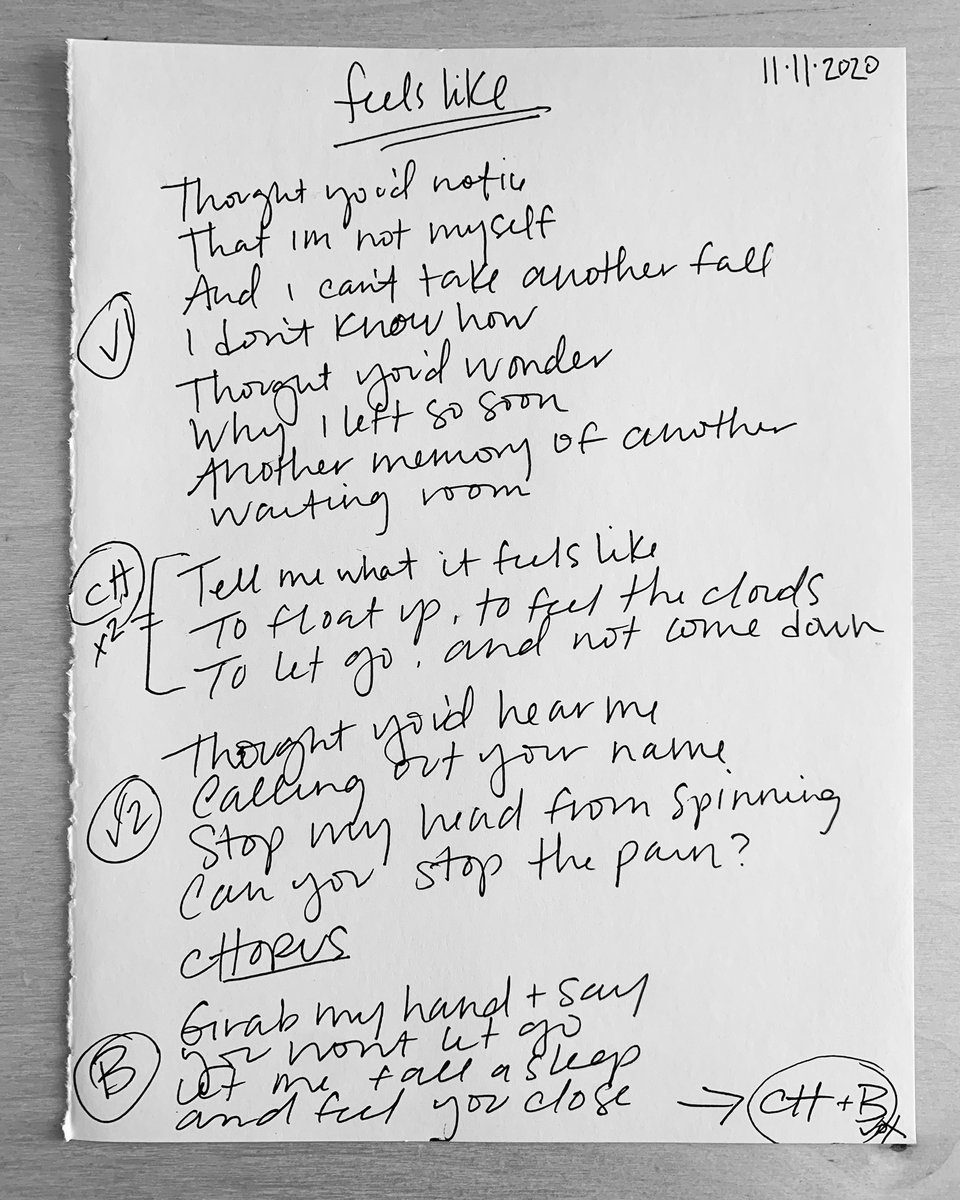 feels like
11·11·2020
Thought you'd notice
That im not myself
And i can't take another fall
I don't know how
Thought you'd wonder
Why i left so soon
Another memory of another
waiting room
V1
CH
x2
Tell me what it feels like
To float up, to feel the clouds
To let go, and not come down
Thought you'd hear me
Calling out your name
V2
Stop my head from spinning
Can you stop the pain?
CHORUS
Grab my hand + say
you won't let go
B
Let me fall asleep
and feel you close
→ CH + B
vox